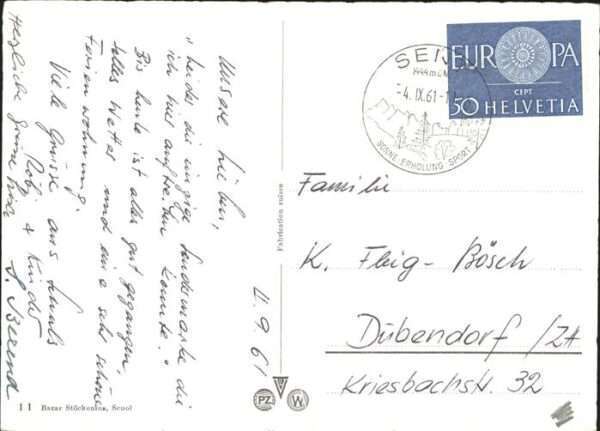 Unsere Lieben,
"leider die einzige Sondermarke die
ich hier auftreiben konnte."
Bis heute ist alles gut gegangen,
tolles Wetter und eine sehr schöne
Ferienwohnung.
Viele Grüsse aus
Roby & Kinder
Herzliche Grüsse
4.9.61
11 Bazar Stöckenius, Scuol
Fabrication suisse
PZ
W
4.IX.61
1444 m ü M
SONNE ERHOLUNG SPORT
EUROPA
CEPT
50 HELVETIA
Familie
K. Flig-Bösch
Dübendorf/ZH
Kriesbachstr. 32